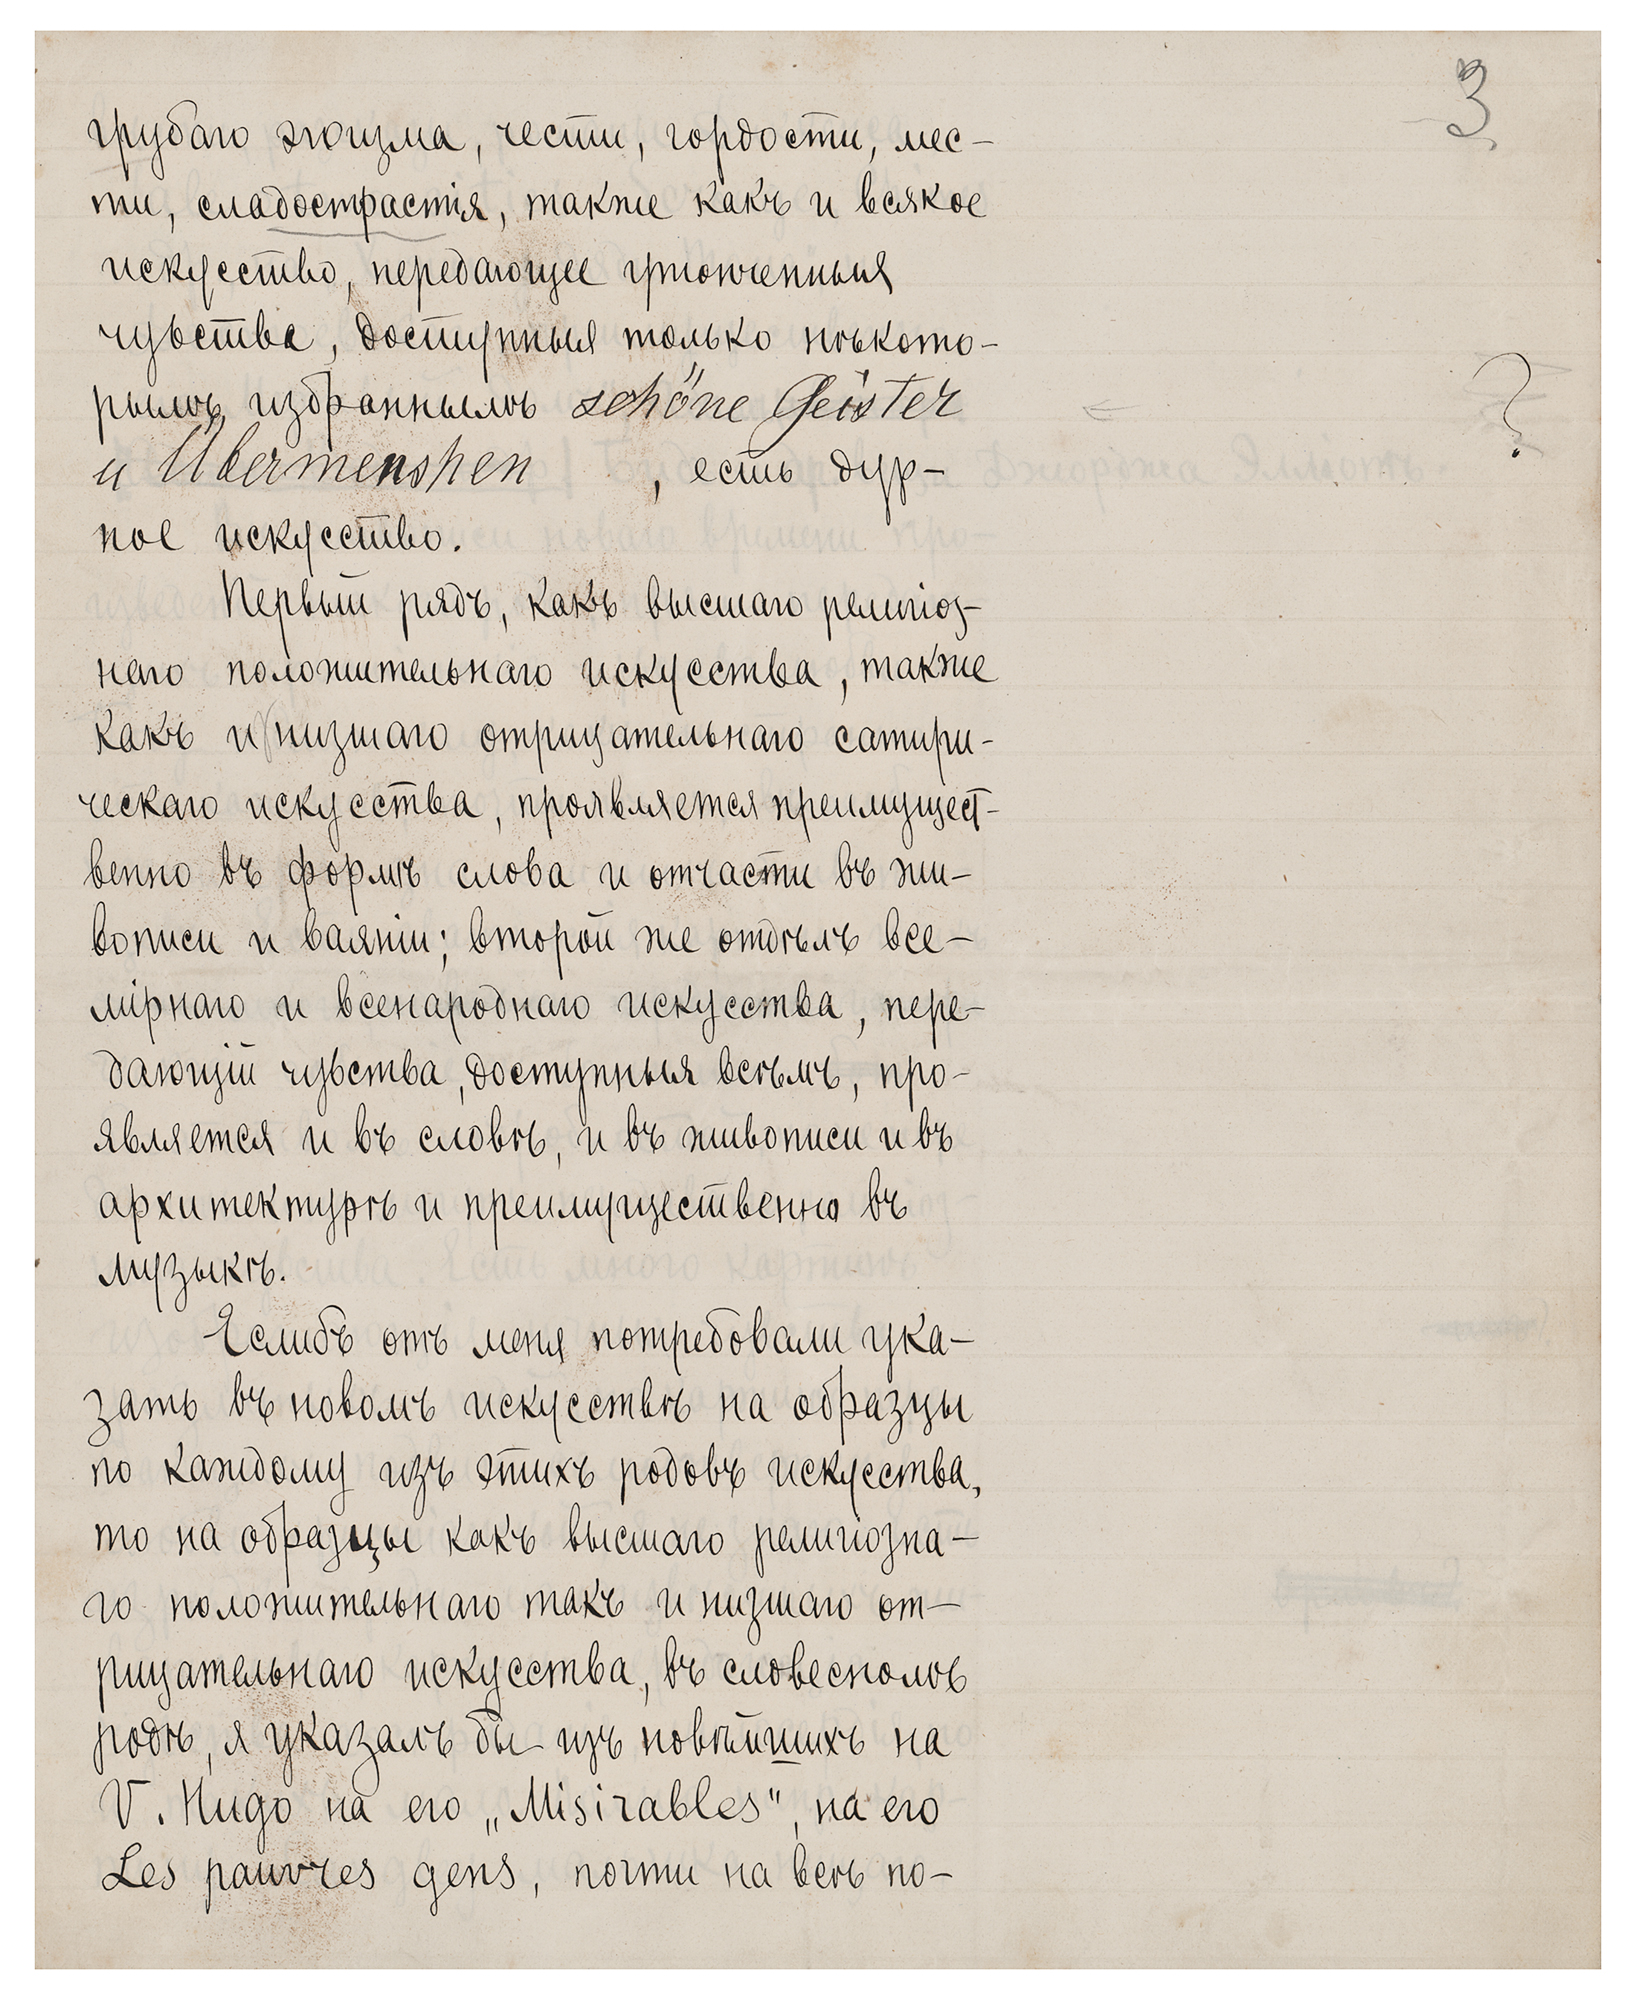 3
грубаго эгоизма, чести, гордости, мес-
ти, сладострастія, также какъ и всякое
искусство, передающее утонченныя
чувства, доступныя только нѣкото-
рымъ избраннымъ schöne Geister
и Übermenshen , есть дур-
ное искусство.
?
Первый рядъ, какъ высшаго религіоз-
наго положительнаго искусства, также
какъ и низшаго отрицательнаго сатири-
ческаго искусства, проявляется преимущест-
венно въ формѣ слова и отчасти въ жи-
вописи и ваяніи; второй же отдѣлъ все-
мірнаго и всенароднаго искусства, пере-
дающій чувства, доступныя всѣмъ, про-
является и въ словѣ, и въ живописи и въ
архитектурѣ и преимущественно въ
музыкѣ.
Еслибъ отъ меня потребовали ука-
зать въ новомъ искусствѣ на образцы
по каждому изъ этихъ родовъ искусства,
то на образцы какъ высшаго религіозна-
го положительнаго такъ и низшаго от-
рицательнаго искусства, въ словесномъ
родѣ, я указалъ бы изъ новѣйшихъ на
V. Hugo на его „Misirables", на его
Les pauvres gens, почти на всѣ по-